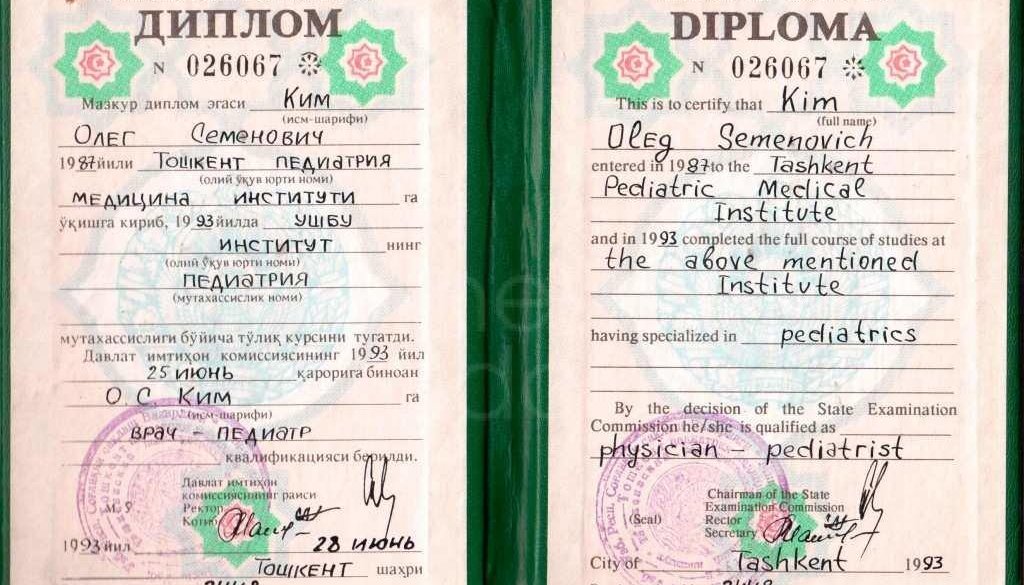 ДИПЛОМ
N 026067
Мазкур диплом эгаси Ким
(исм-шарифи)
Олег Семенович
1987 йили Тошкент педиатрия
(олий ўқув юрти номи)
медицина институти га
ўқишга кириб, 1993 йилда ушбу
институт нинг
(олий ўқув юрти номи)
педиатрия
(мутахассислик номи)
мутахассислиги бўйича тўлиқ курсини тугатди.
Давлат имтиҳон комиссиясининг 1993 йил
25 июнь қарорига биноан
О.С. Ким га
(исм-шарифи)
врач – педиатр
квалификацияси берилди.
Давлат имтиҳон
комиссиясининг раиси
М. Ў Ректор
Котиб
1993 йил 28 июнь
Тошкент шаҳри
DIPLOMA
N 026067
This is to certify that Kim
(full name)
Oleg Semenovich
entered in 1987 to the Tashkent
Pediatric Medical
Institute
and in 1993 completed the full course of studies at
the above mentioned
Institute
having specialized in pediatrics
By the decision of the State Examination
Commission he/she is qualified as
physician – pediatrist
Chairman of the State
Examination Commission
(Seal) Rector
Secretary
City of Tashkent 1993